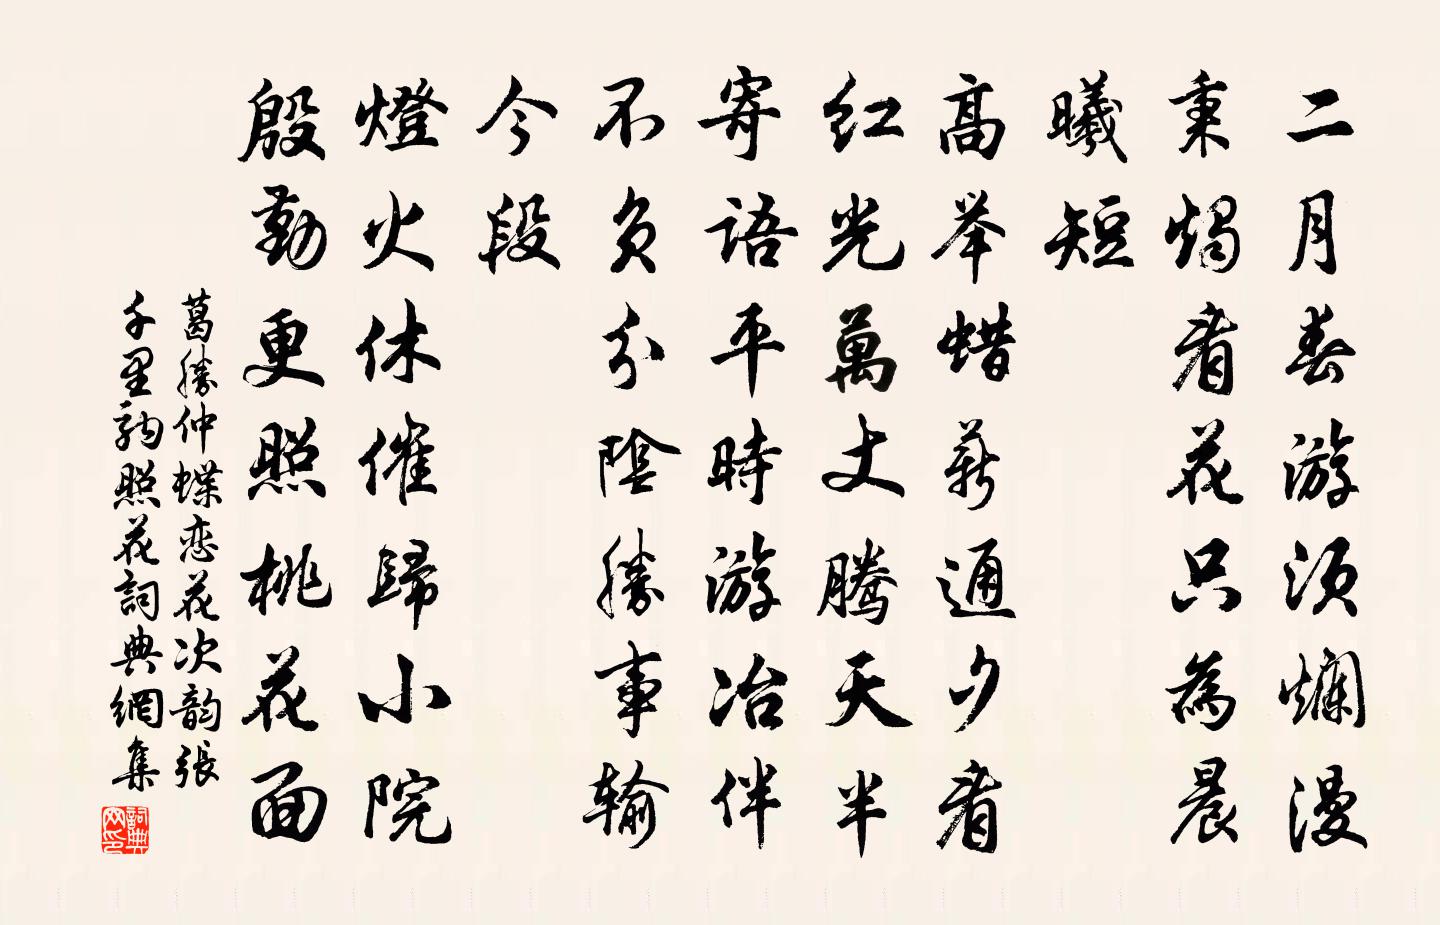 二月春游须爛漫
秉烛看花只為晨
曦短
高举蜡薪通夕看
红光萬丈腾天半
寄语平時游冶伴
不负分陰勝事输
今段
燈火休催歸小院
殷勤更照桃花面
葛勝仲蝶恋花次韵張
千里駒照花詞典網集
詞典網印